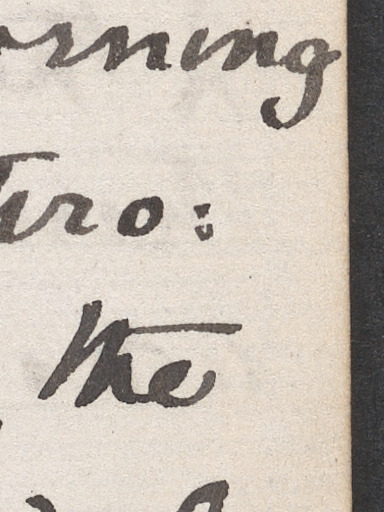 orning
tiro:
the